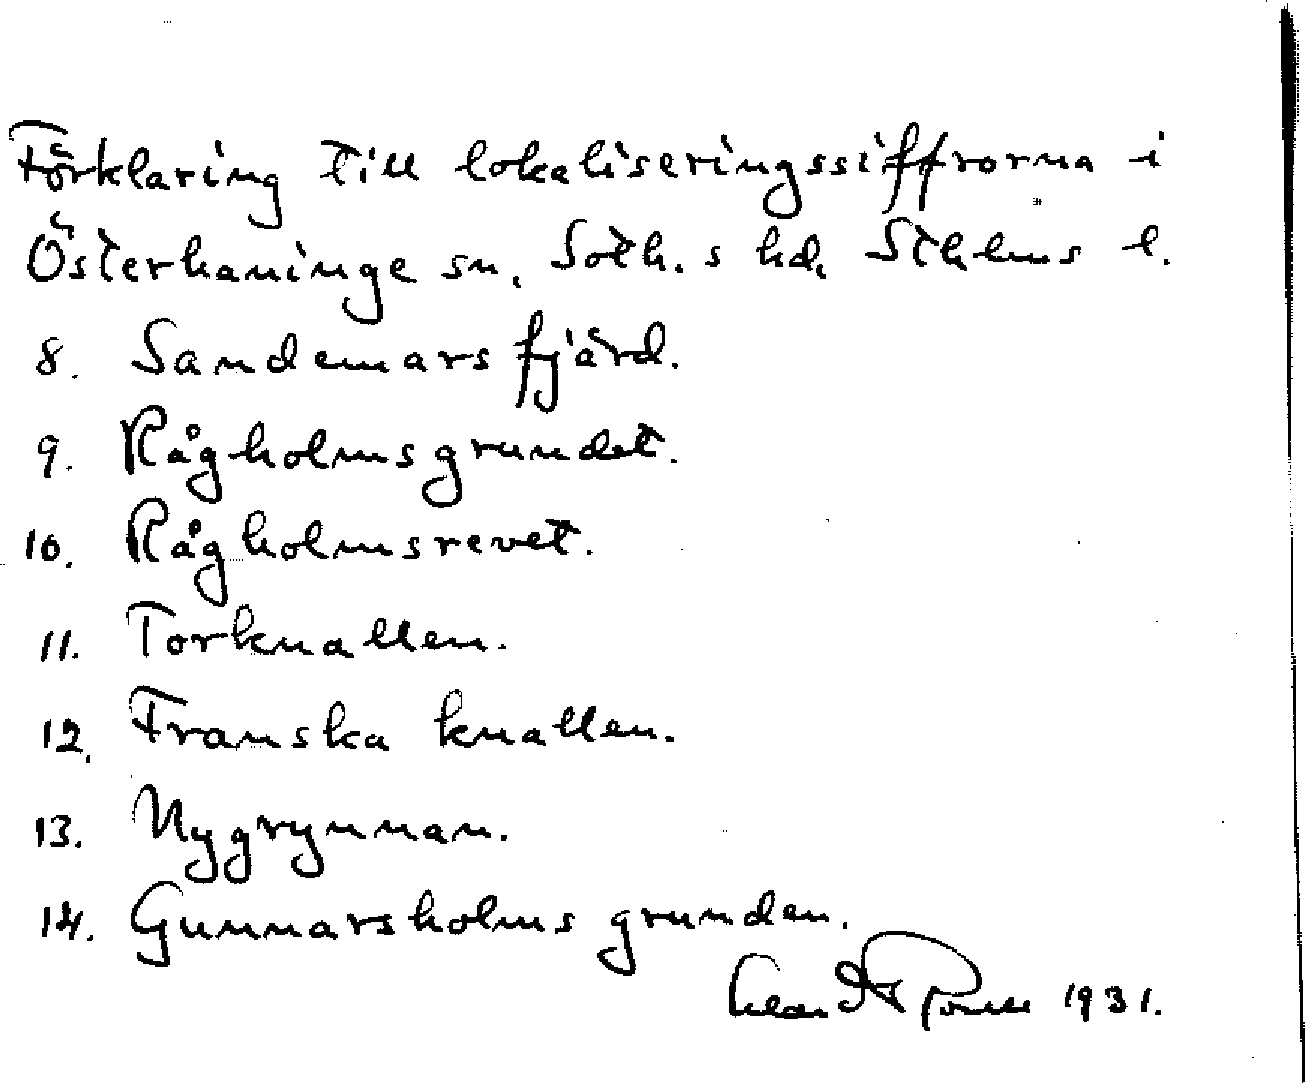 Förklaring till lokaliseringssiffrorna i
Österhaninge sn, Soth. s hd, Sthlms l.
8. Sandemars fjärd.
9. Rågholmsgrundet.
10. Rågholmsrevet.
11. Torknallen.
12. Franska knallen.
13. Nygrynnan.
14. Gunnarsholms grunden.
1931.